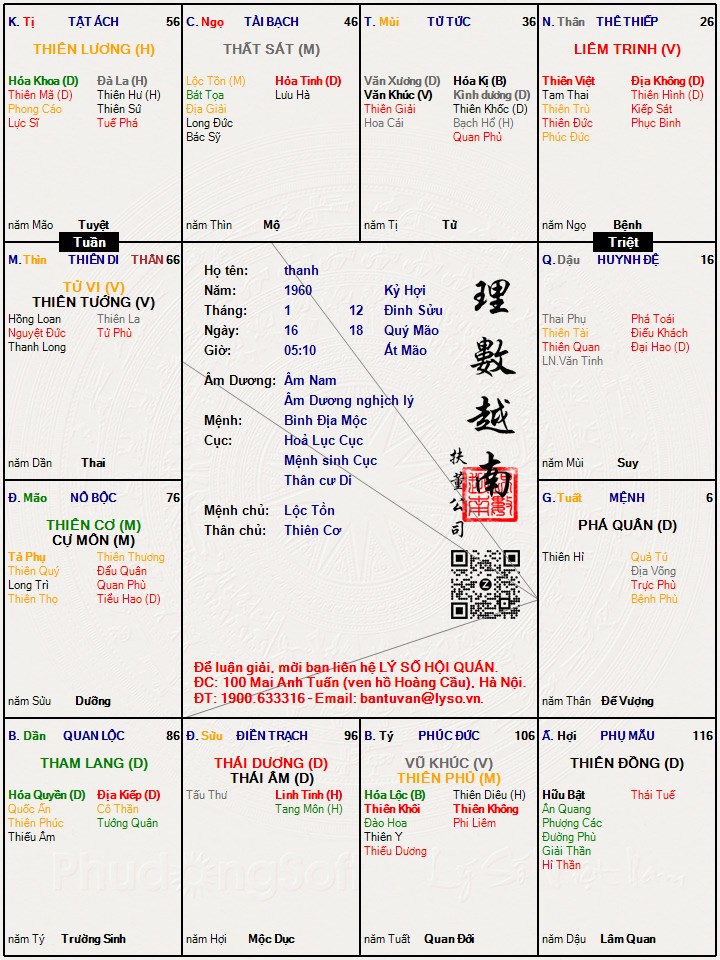 K. Tị TẬT ÁCH 56
THIÊN LƯƠNG (H)
Hóa Khoa (D) Đà La (H)
Thiên Mã (D) Thiên Hư (H)
Phong Cáo Thiên Sứ
Lực Sĩ Tuế Phá
năm Mão Tuyệt
C. Ngọ TÀI BẠCH 46
THẤT SÁT (M)
Lộc Tồn (M) Hỏa Tinh (D)
Bát Tọa Lưu Hà
Địa Giải
Long Đức
Bác Sỹ
năm Thìn Mộ
T. Mùi TỬ TỨC 36
Văn Xương (D) Hóa Kị (B)
Văn Khúc (V) Kình dương (D)
Thiên Giải Thiên Khốc (D)
Hoa Cái Bạch Hổ (H)
Quan Phủ
năm Tị Tử
N. Thân THÊ THIẾP 26
LIÊM TRINH (V)
Thiên Việt Địa Không (D)
Tam Thai Thiên Hình (D)
Thiên Trù Kiếp Sát
Thiên Đức Phục Binh
Phúc Đức
năm Ngọ Bệnh
Tuần
Triệt
M. Thìn THIÊN DI THÂN 66
TỬ VI (V)
THIÊN TƯỚNG (V)
Hồng Loan Thiên La
Nguyệt Đức Tử Phù
Thanh Long
năm Dần Thai
Họ tên: thanh
Năm: 1960 Kỷ Hợi
Tháng: 1 12 Đinh Sửu
Ngày: 16 18 Quý Mão
Giờ: 05:10 Ất Mão
Âm Dương: Âm Nam
Âm Dương nghịch lý
Mệnh: Bình Địa Mộc
Cục: Hoả Lục Cục
Mệnh sinh Cục
Thân cư Di
Mệnh chủ: Lộc Tồn
Thân chủ: Thiên Cơ
理數越南
扶董公司
Z
Để luận giải, mời bạn liên hệ LÝ SỐ HỘI QUÁN.
ĐC: 100 Mai Anh Tuấn (ven hồ Hoàng Cầu), Hà Nội.
ĐT: 1900.633316 - Email: bantuvan@lyso.vn.
Q. Dậu HUYNH ĐỆ 16
Thai Phụ Phá Toái
Thiên Tài Điếu Khách
Thiên Quan Đại Hao (D)
LN.Văn Tinh
năm Mùi Suy
Đ. Mão NÔ BỘC 76
THIÊN CƠ (M)
CỰ MÔN (M)
Tả Phụ Thiên Thương
Thiên Quý Đẩu Quân
Long Trì Quan Phù
Thiên Thọ Tiểu Hao (D)
năm Sửu Dưỡng
G. Tuất MỆNH 6
PHÁ QUÂN (D)
Thiên Hỉ Quả Tú
Địa Võng
Trực Phù
Bệnh Phù
năm Thân Đế Vượng
B. Dần QUAN LỘC 86
THAM LANG (D)
Hóa Quyền (D) Địa Kiếp (D)
Quốc Ấn Cô Thần
Thiên Phúc Tướng Quân
Thiếu Âm
năm Tý Trường Sinh
Đ. Sửu ĐIỀN TRẠCH 96
THÁI DƯƠNG (D)
THÁI ÂM (D)
Tấu Thư Linh Tinh (H)
Tang Môn (H)
năm Hợi Mộc Dục
B. Tý PHÚC ĐỨC 106
VŨ KHÚC (V)
THIÊN PHỦ (M)
Hóa Lộc (B) Thiên Diêu (H)
Thiên Khôi Thiên Không
Đào Hoa Phi Liêm
Thiên Y
Thiếu Dương
năm Tuất Quan Đới
Ấ. Hợi PHỤ MẪU 116
THIÊN ĐỒNG (D)
Hữu Bật Thái Tuế
Ân Quang
Phượng Các
Đường Phù
Giải Thần
Hỉ Thần
năm Dậu Lâm Quan